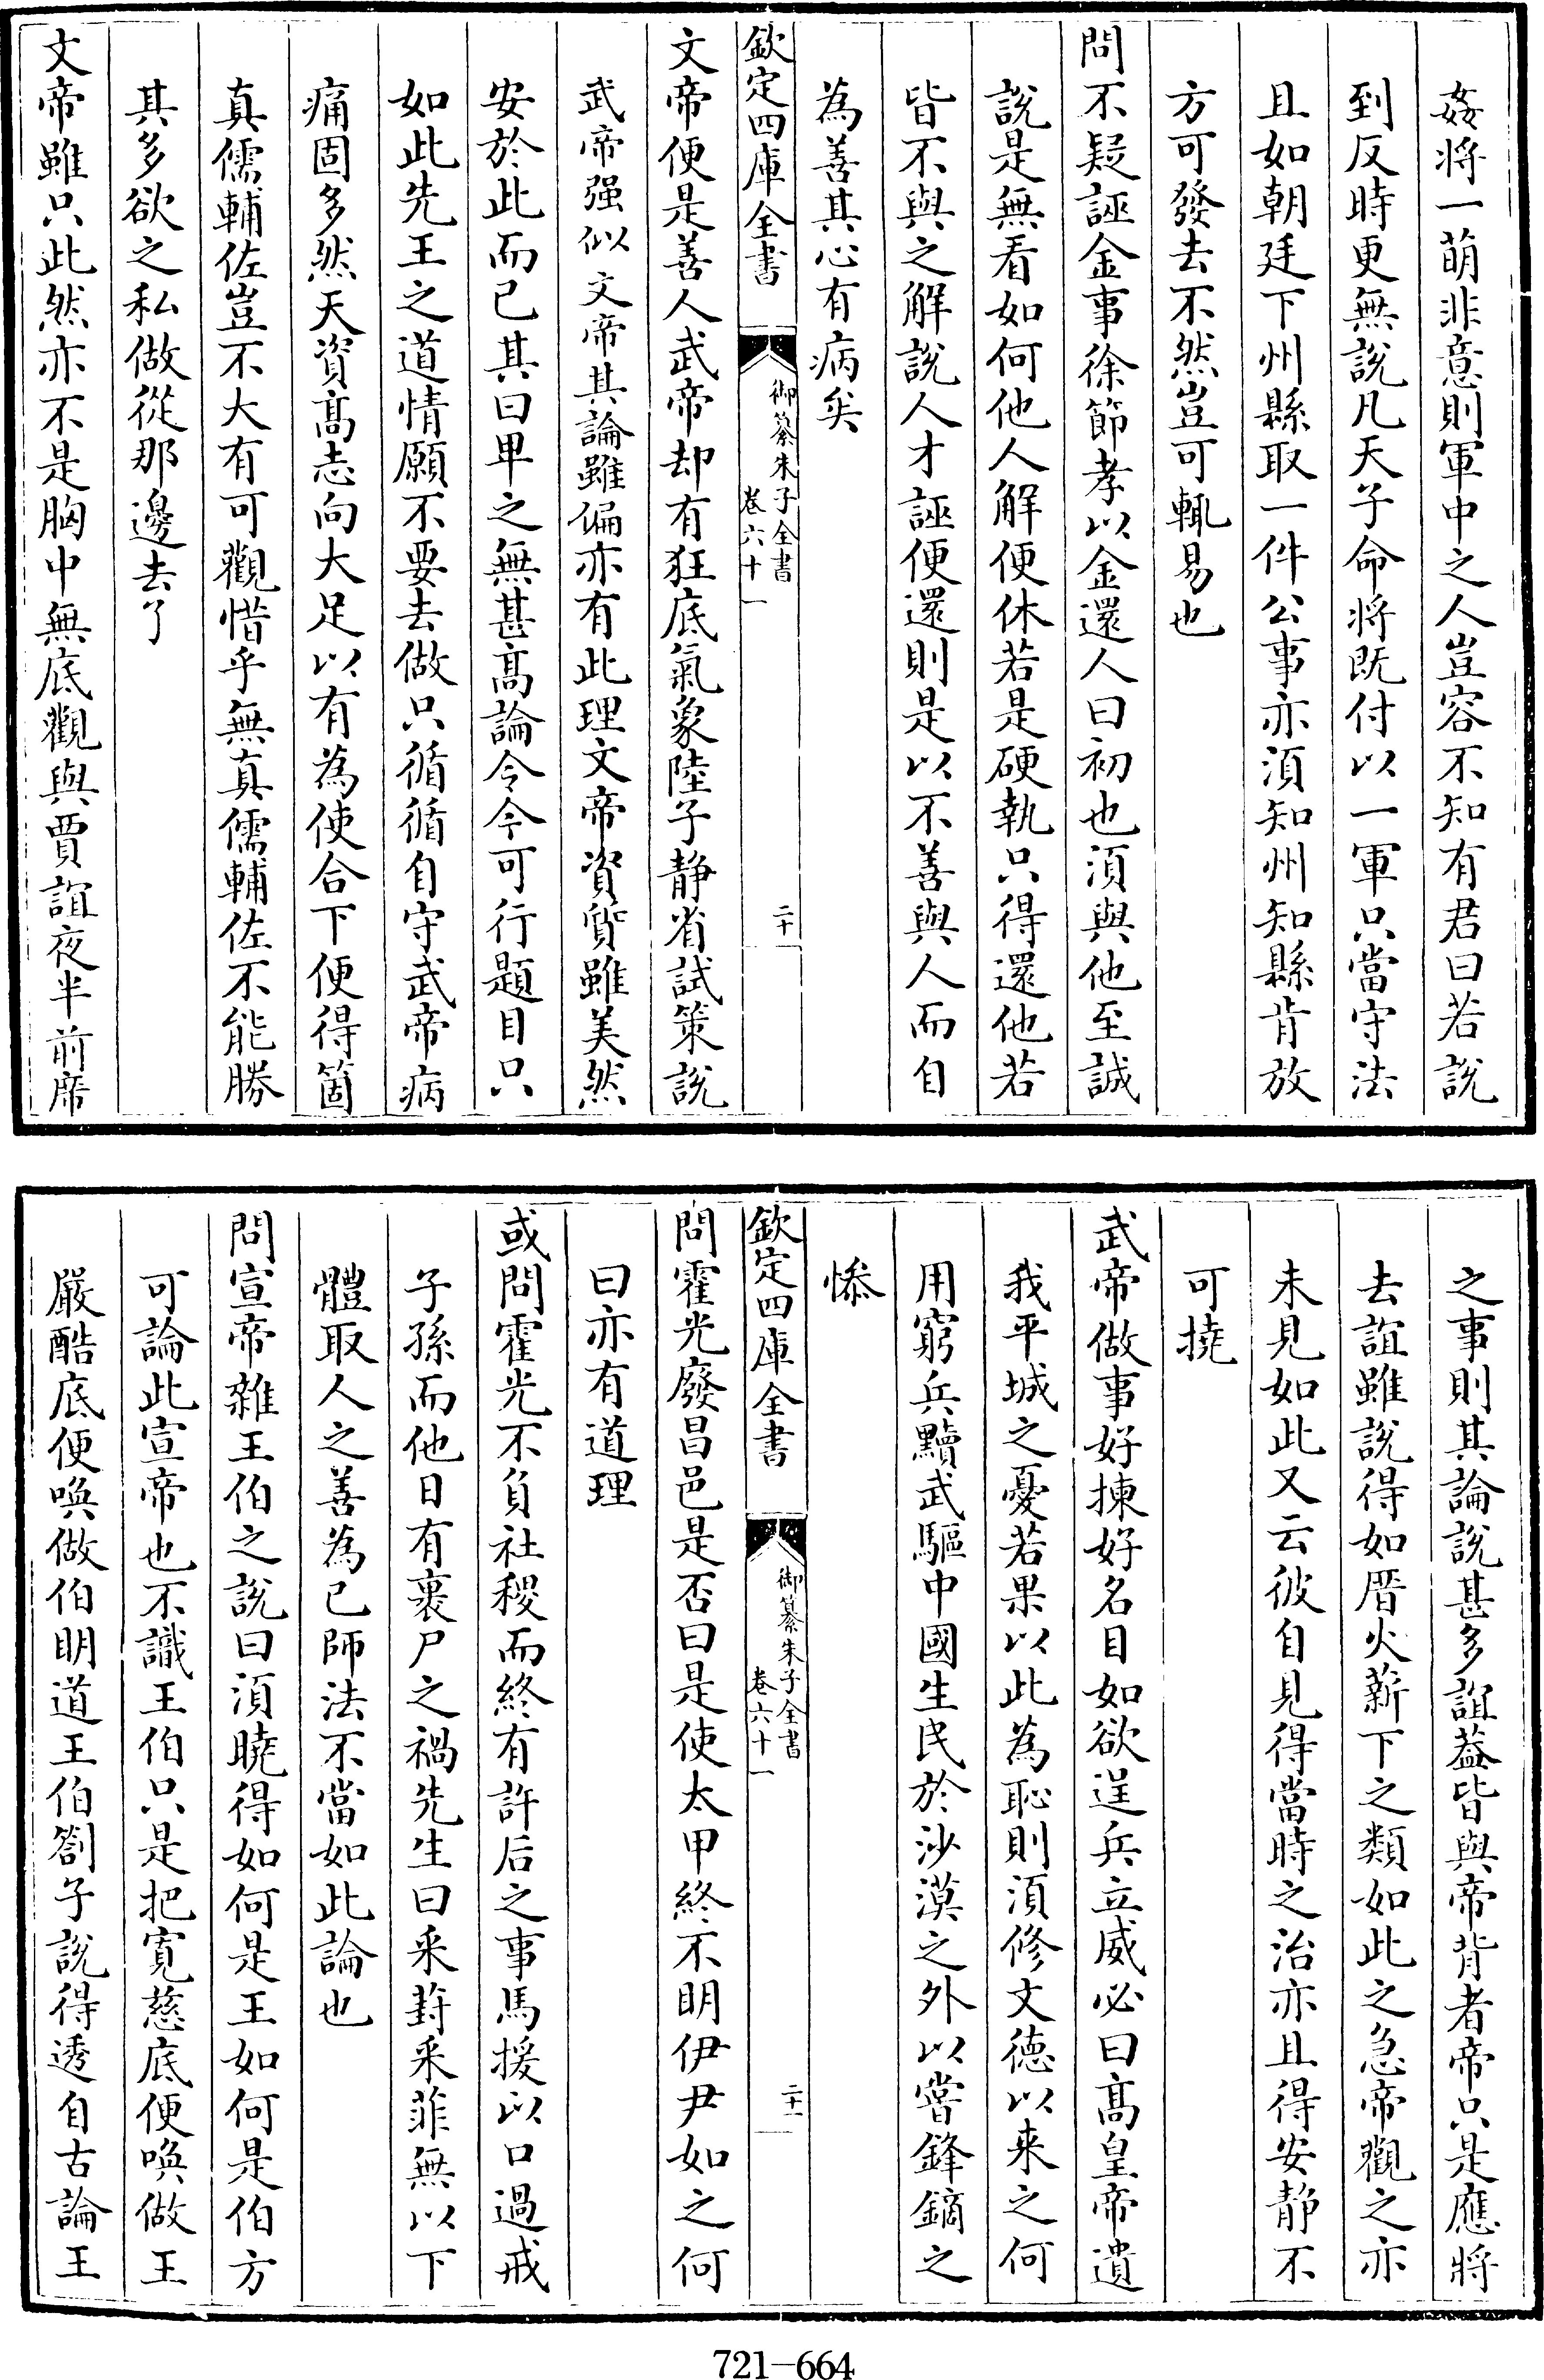 姦將一萌非意則軍中之人豈容不知有君曰若説
到反時更無説凡天子命將既付以一軍只當守法
且如朝廷下州縣取一件公事亦須知州知縣肯放
方可發去不然豈可輒易也
問不疑誣金事徐節孝以金還人曰初也須與他至誠
説是無看如何他人解便休若是硬執只得還他若
皆不與之解説人才誣便還則是以不善與人而自
為善其心有病矣
欽定四庫全書
御纂朱子全書
卷六十一
二十
文帝便是善人武帝却有狂底氣象陸子静省試策説
武帝强似文帝其論雖偏亦有此理文帝資質雖美然
安於此而已其曰卑之無甚髙論令今可行題目只
如此先王之道情願不要去做只循循自守武帝病
痛固多然天資髙志向大足以有為使合下便得箇
真儒輔佐豈不大有可觀惜乎無真儒輔佐不能勝
其多欲之私做從那邊去了
文帝雖只此然亦不是胸中無底觀與賈誼夜半前席
之事則其論説甚多誼葢皆與帝背者帝只是應將
去誼雖説得如厝火薪下之類如此之急帝觀之亦
未見如此又云彼自見得當時之治亦且得安静不
可撓
武帝做事好揀好名目如欲逞兵立威必曰髙皇帝遺
我平城之憂若果以此為恥則須修文德以来之何
用窮兵黷武驅中國生民於沙漠之外以嘗鋒鏑之
慘
欽定四庫全書
御纂朱子全書
卷六十一
二十一
問霍光廢昌邑是否曰是使太甲終不明伊尹如之何
曰亦有道理
或問霍光不負社稷而終有許后之事馬援以口過戒
子孫而他日有裹尸之禍先生曰采葑采菲無以下
體取人之善為已師法不當如此論也
問宣帝雜王伯之説曰須曉得如何是王如何是伯方
可論此宣帝也不識王伯只是把寛慈底便喚做王
嚴酷底便喚做伯明道王伯劄子説得透自古論王
721-664